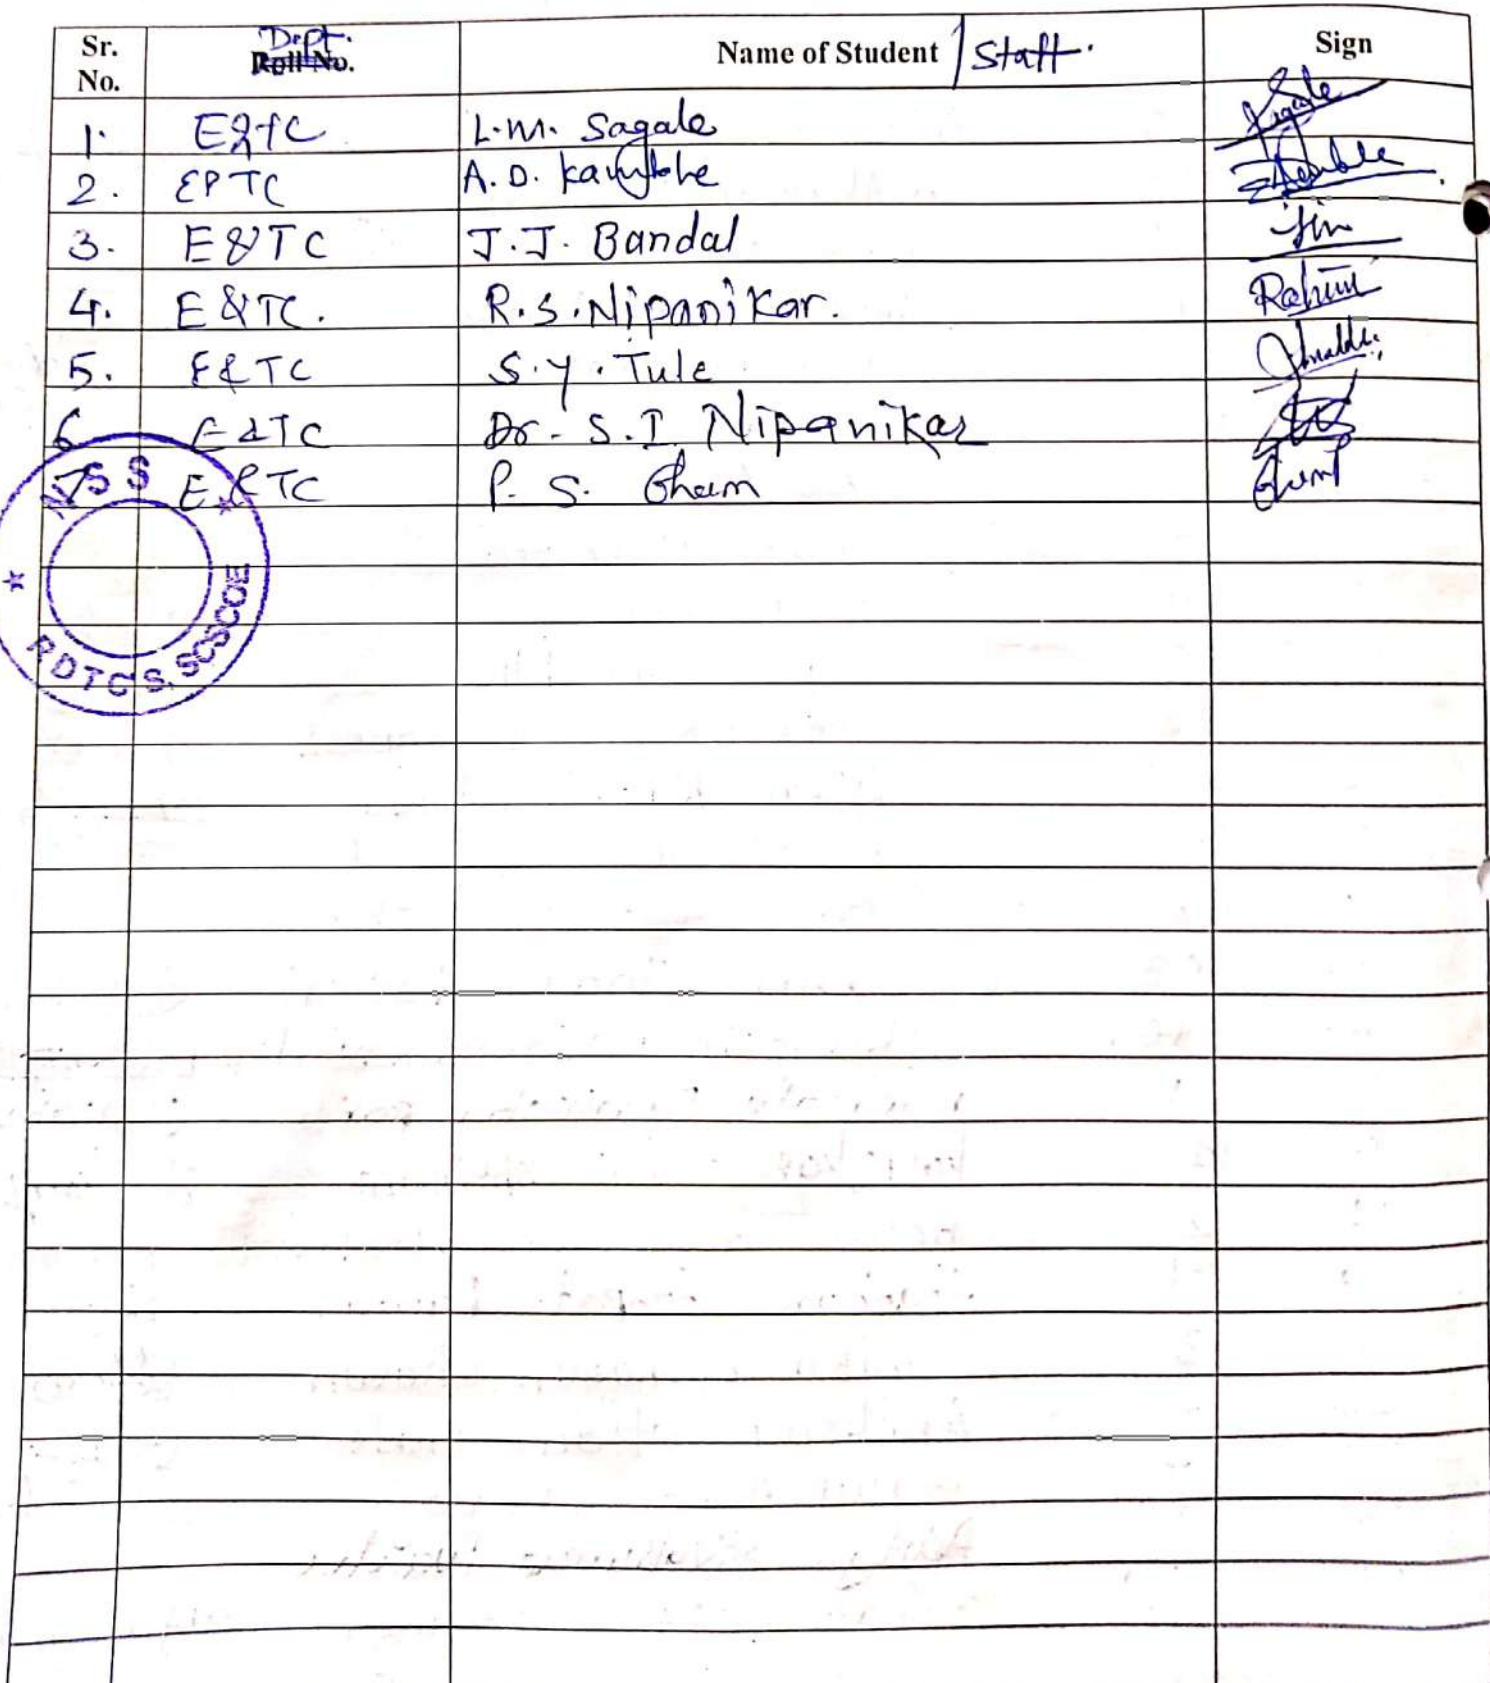 Sr. No. Dept. Roll No. Name of Student / Staff. Sign
1. E&TC L.M. Sagale Sagale
2. E&TC A.D. Kamble
3. E&TC J.J. Bandal
4. E&TC. R.S. Nipanikar.
5. E&TC S.Y. Tule
6 E&TC Dr. S.I. Nipanikar
7 E&TC P.S.
NSS
RDTC'S, SCSCOE